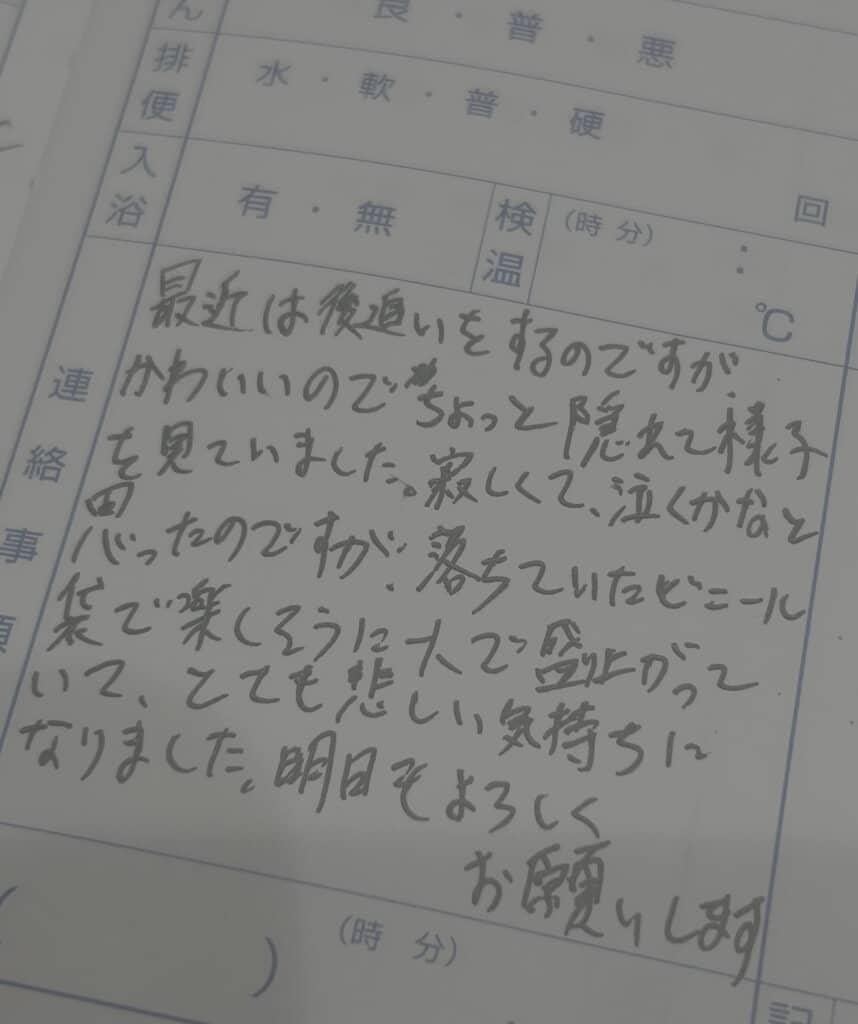 ん
良・普・悪
排便
水・軟・普・硬
回
入浴
有・無
検温
(時 分)
:
℃
連絡事項
最近は後追いをするのですが
かわいいのでちょっと隠れて様子
を見ていました。寂しくて、泣くかなと
思ったのですが、落ちていたビニール
袋で楽しそうに大で盛り上がって
いて、とても悲しい気持ちに
なりました。明日もよろしく
お願いします
(時 分)
)
記